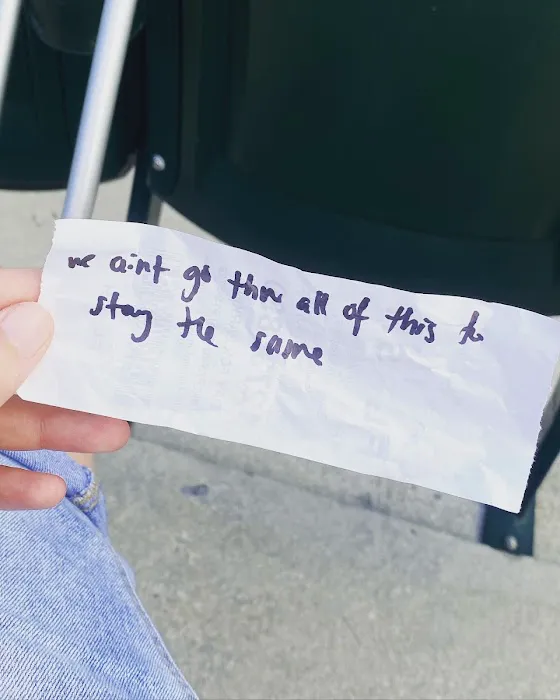 we ain't go thru all of this to
stay the same